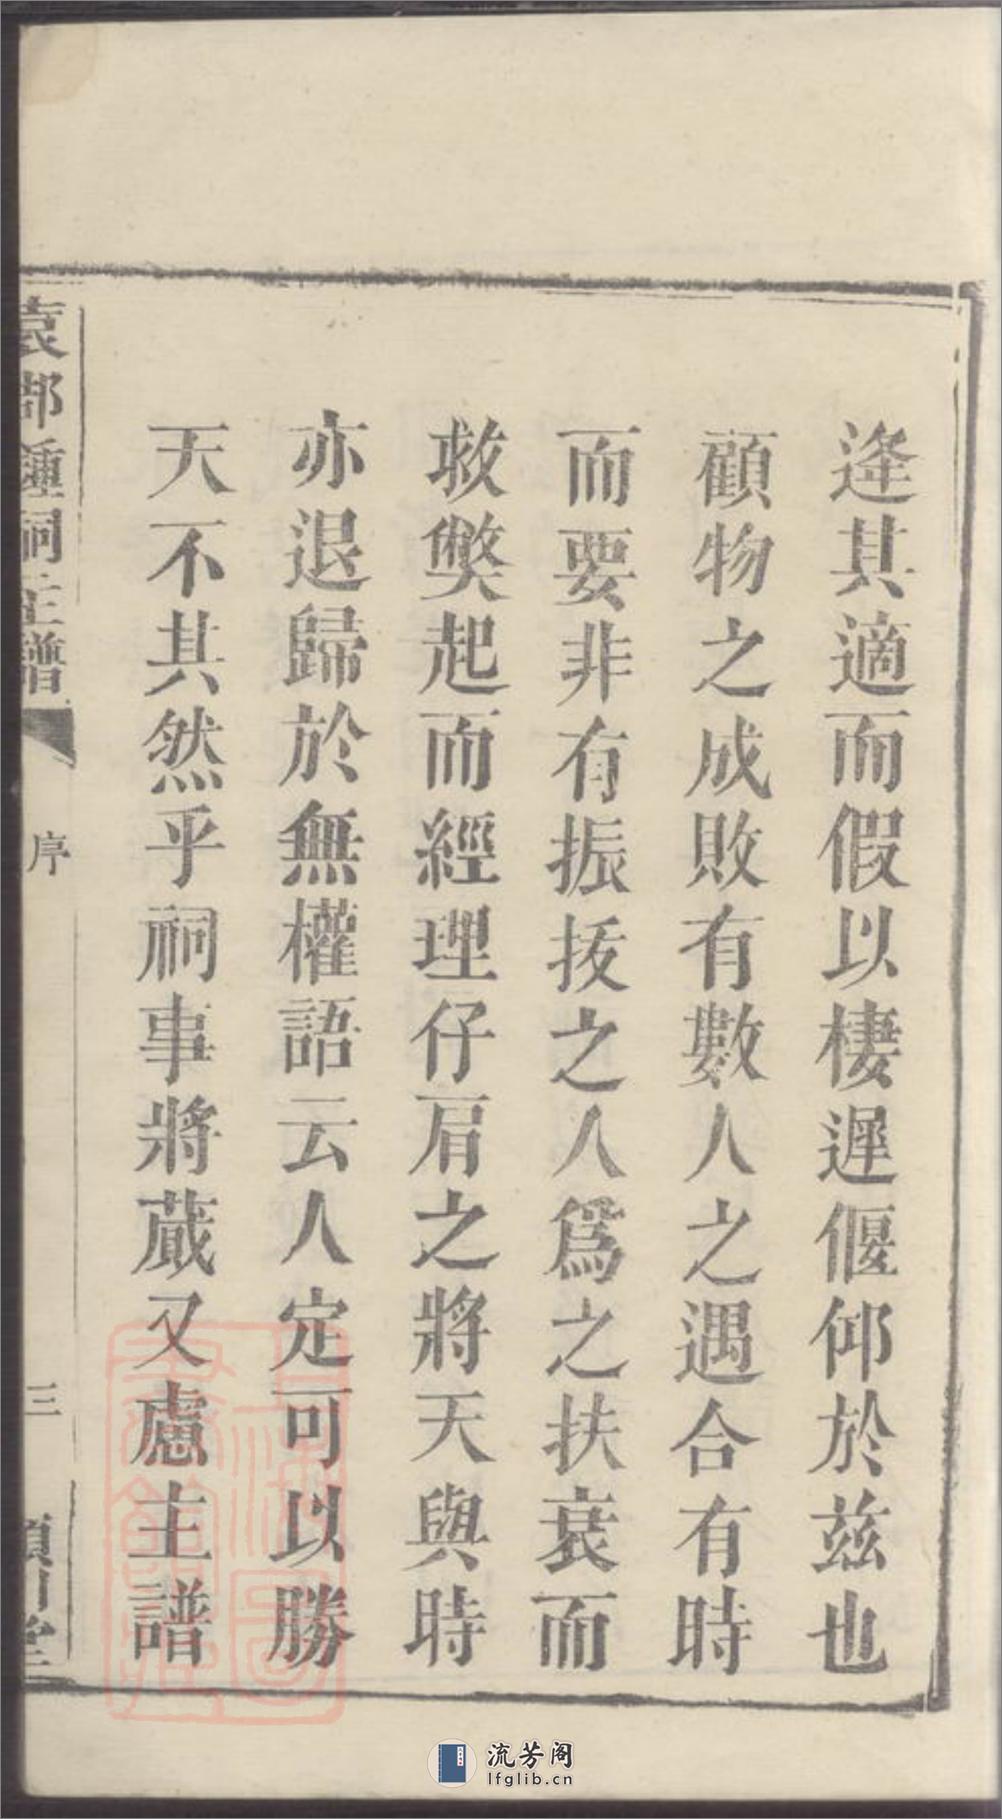 逄其適而假以棲遲偃仰於茲也
顧物之成敗有數人之遇合有時
而要非有振拔之人爲之扶衰而
救獘起而經理仔肩之將天與時
亦退歸於無權語云人定可以勝
天不其然乎祠事將蕆又慮主譜
袁郡鍾祠主譜
序
三
潁川堂
流芳阁
lfglib.cn